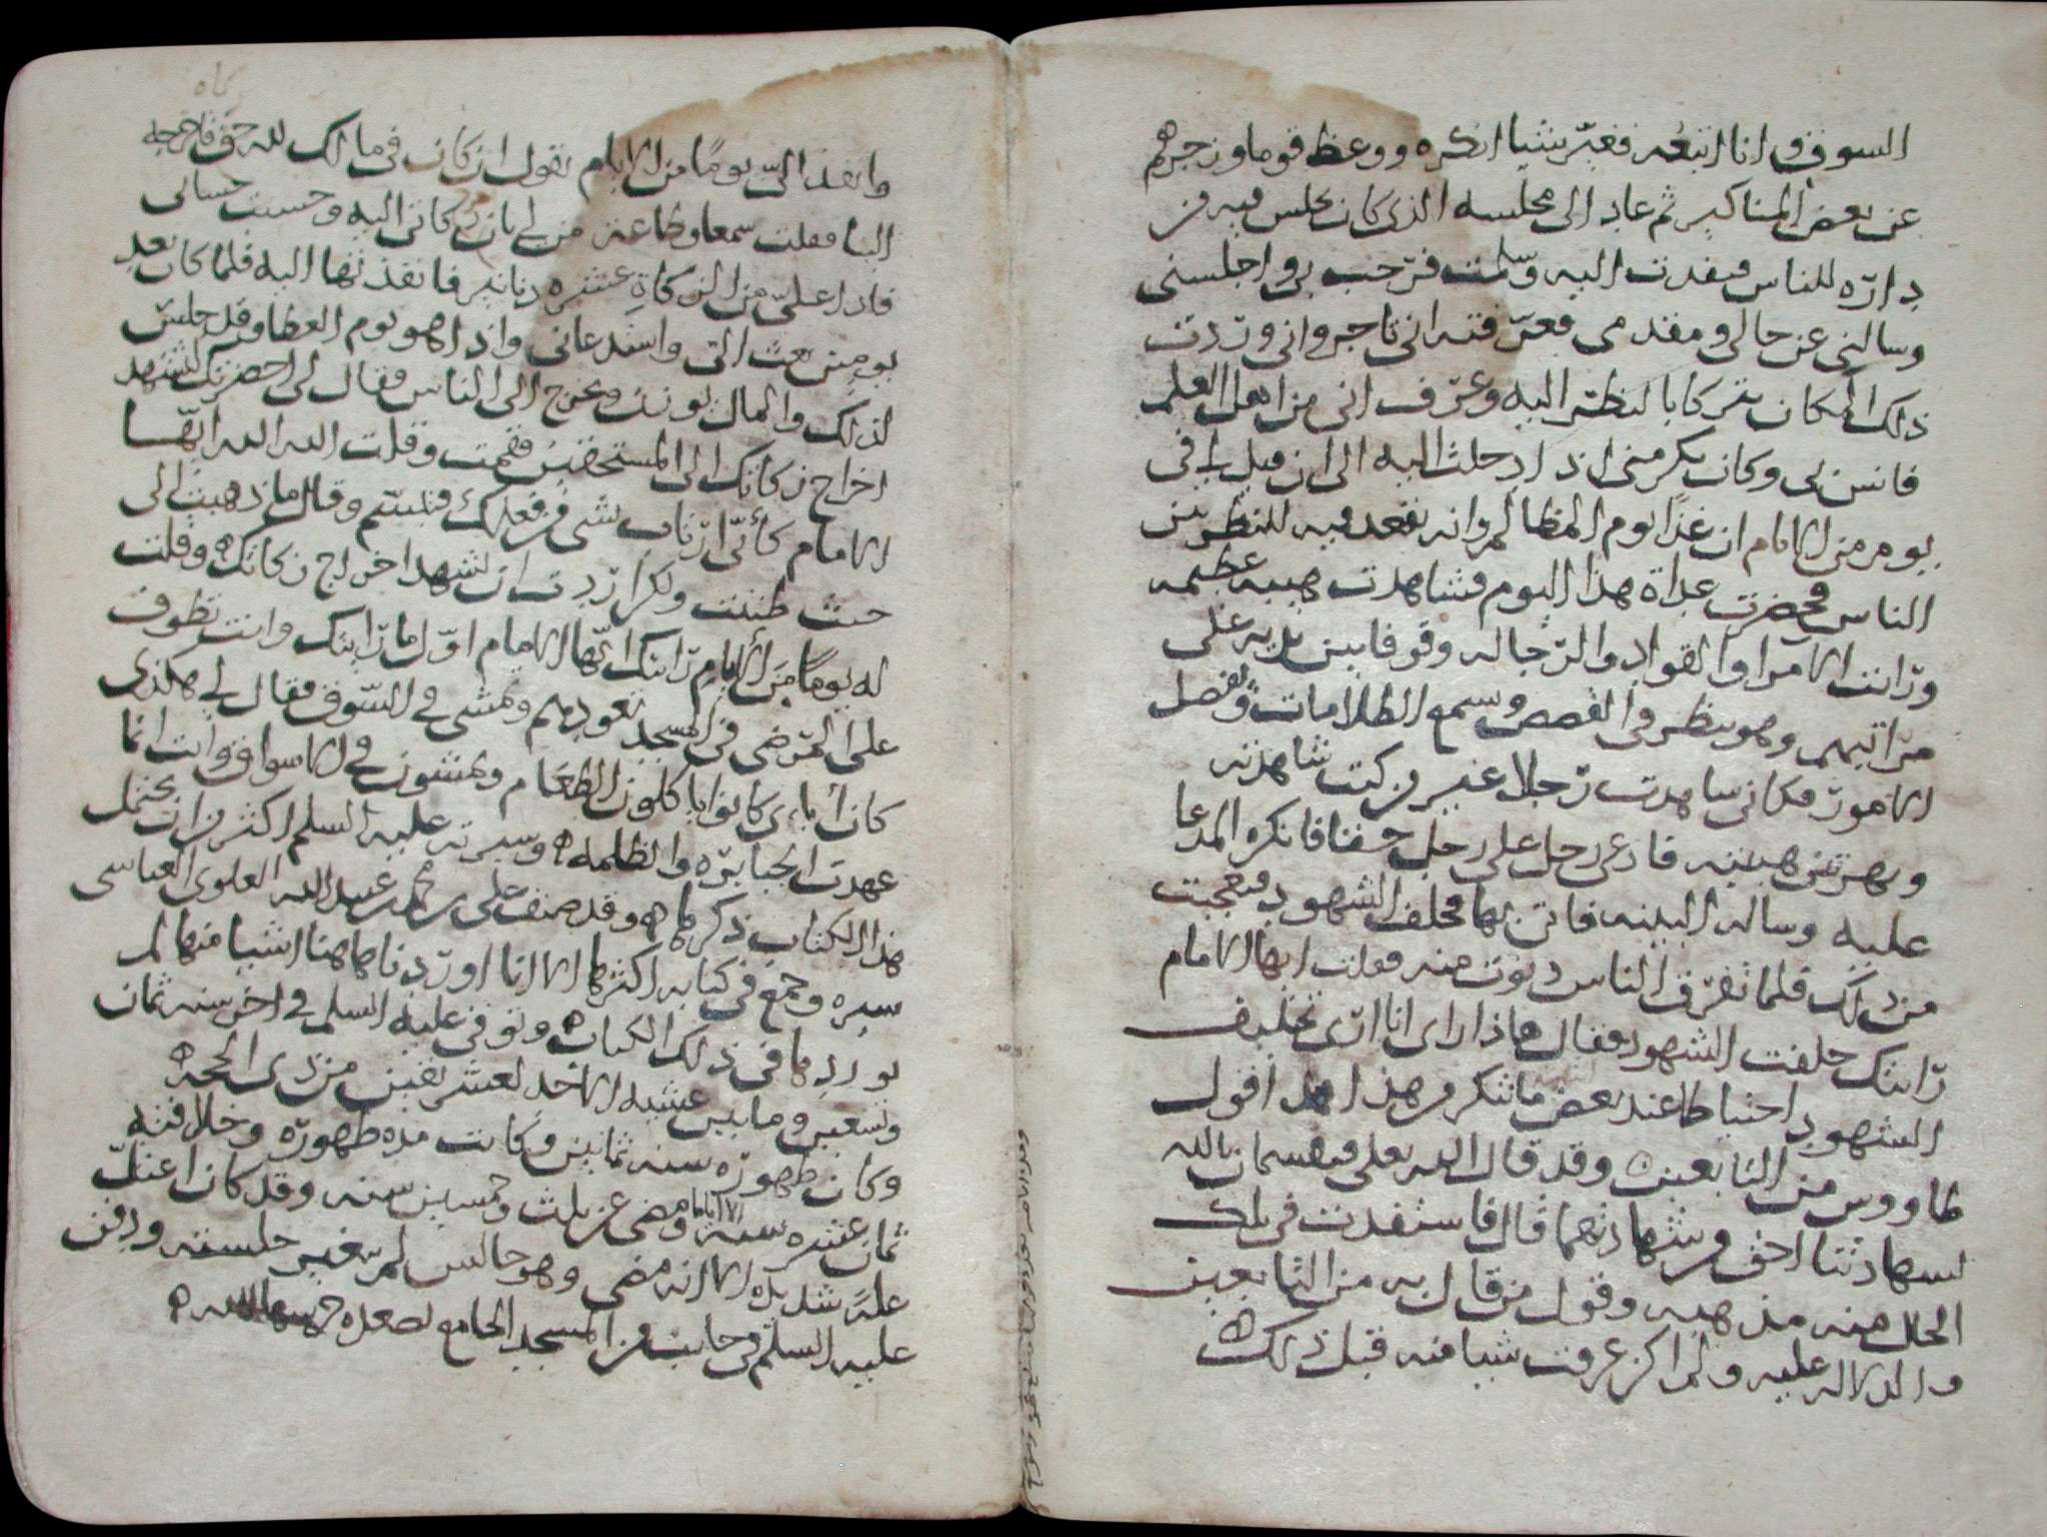 السوق وانا اتبعه فغير شيا انكره ووعظ قوما وزجرهم
عن بعض المناكير ثم عاد الى مجلسه الذى كان يجلس فيه من
داره للناس فتقدمت اليه وسلمت فرحب بى واجلسنى
وسالنى عن حالى ومقدمى فعرفته انى تاجر وانى وردت
ذلك المكان تبركا بالنظر اليه وعرف انى من اهل العلم
فانس بى وكان يكرمنى اذا دخلت اليه الى ان قيل لى فى
يوم من الايام ان غدا يوم المظالم وانه يقعد فيه للنظر بين
الناس فحضرت غداة هذا اليوم فشاهدت هيبه عظيمه
ورايت الامرا والقواد والرجاله وقوفا بين يديه على
مراتبهم وهو ينظر فى القصص ويسمع الظلامات ويفصل
الامور فكانى شاهدت رجلا غير من كنت شاهدته
وبهرتنى هيبته فادعى رجل على رجل حقا فانكره المدعا
عليه وساله البينه فاتى بها فحلف الشهود فتعجبت
من ذلك فلما تفرق الناس دنوت منه فقلت ايها الامام
رايتك حلفت الشهود فقال هاذا راى انا ارى تحليف
الشهود احتياطا عند بعض ما تنكر من هذا هذا قول
طاووس من التابعين وقد قال الله تعلى فيقسمان بالله
لشهادتنا احق من شهادتهما قال فاستفدت فى تلك
الحال منه مذهبه وقول من قال به من التابعين
والدلاله عليه ولم اكن عرفت شيا منه قبل ذلك
وانفذ الى يوما من الايام يقول ان كان فى مالك لله حق فاخرجه
الينا فقلت سمعا وطاعه من لى بان زكاتى اليه وحسبت حسابى
فاذا على من الزكاة عشره دنانير فانفذتها اليه فلما كان بعد
يومين بعث الى واستدعانى واذا هو يوم العطا وقد جلس
لذلك والمال يوزن ويخرج الى الناس فقال لى احضرتك لتشهد
اخراج زكاتك الى المستحقين فقمت وقلت الله الله ايها
الامام كأنى ارتاب بشى من فعلك فتبسم وقال ما ذهبت الى
حيث ظننت ولكن اردت ان تشهد اخراج زكاتك وقلت
له يوما من الأيام رايتك ايها الامام اول ما رايتك وانت تطوف
على المرضى فى المسجد تعودهم وتمشى فى السوق فقال لى هكذى
كان أباءى كانوا ياكلون الطعام ويمشون فى الاسواق وانت انما
عهدت الجبابره والظلمه وسيرته عليه السلم اكثر من ان يحتمل
هذا الكتاب ذكرها وقد صنف على بن محمد بن عبيد الله العلوى العباسى
سيره وجمع فى كتابه اكثرها الا انا اوردنا هاهنا اشيا منها لم
يوردها فى ذلك الكتاب وتوفى عليه السلم فى اخر سنه ثمان
وتسعين ومايتين عشيه الاحد لعشر بقين من ذى الحجه
وكان ظهوره سنه ثمانين وكانت مده ظهوره وخلافته
ثمان عشره سنه الا اياما ومضى عن ثلث وخمسين سنه وقد كان اعتل
علة شديده الا انه مضى وهو جالس لم يتغير جلسته ودفن
عليه السلم فى جانب من المسجد الجامع بصعده حرسها الله